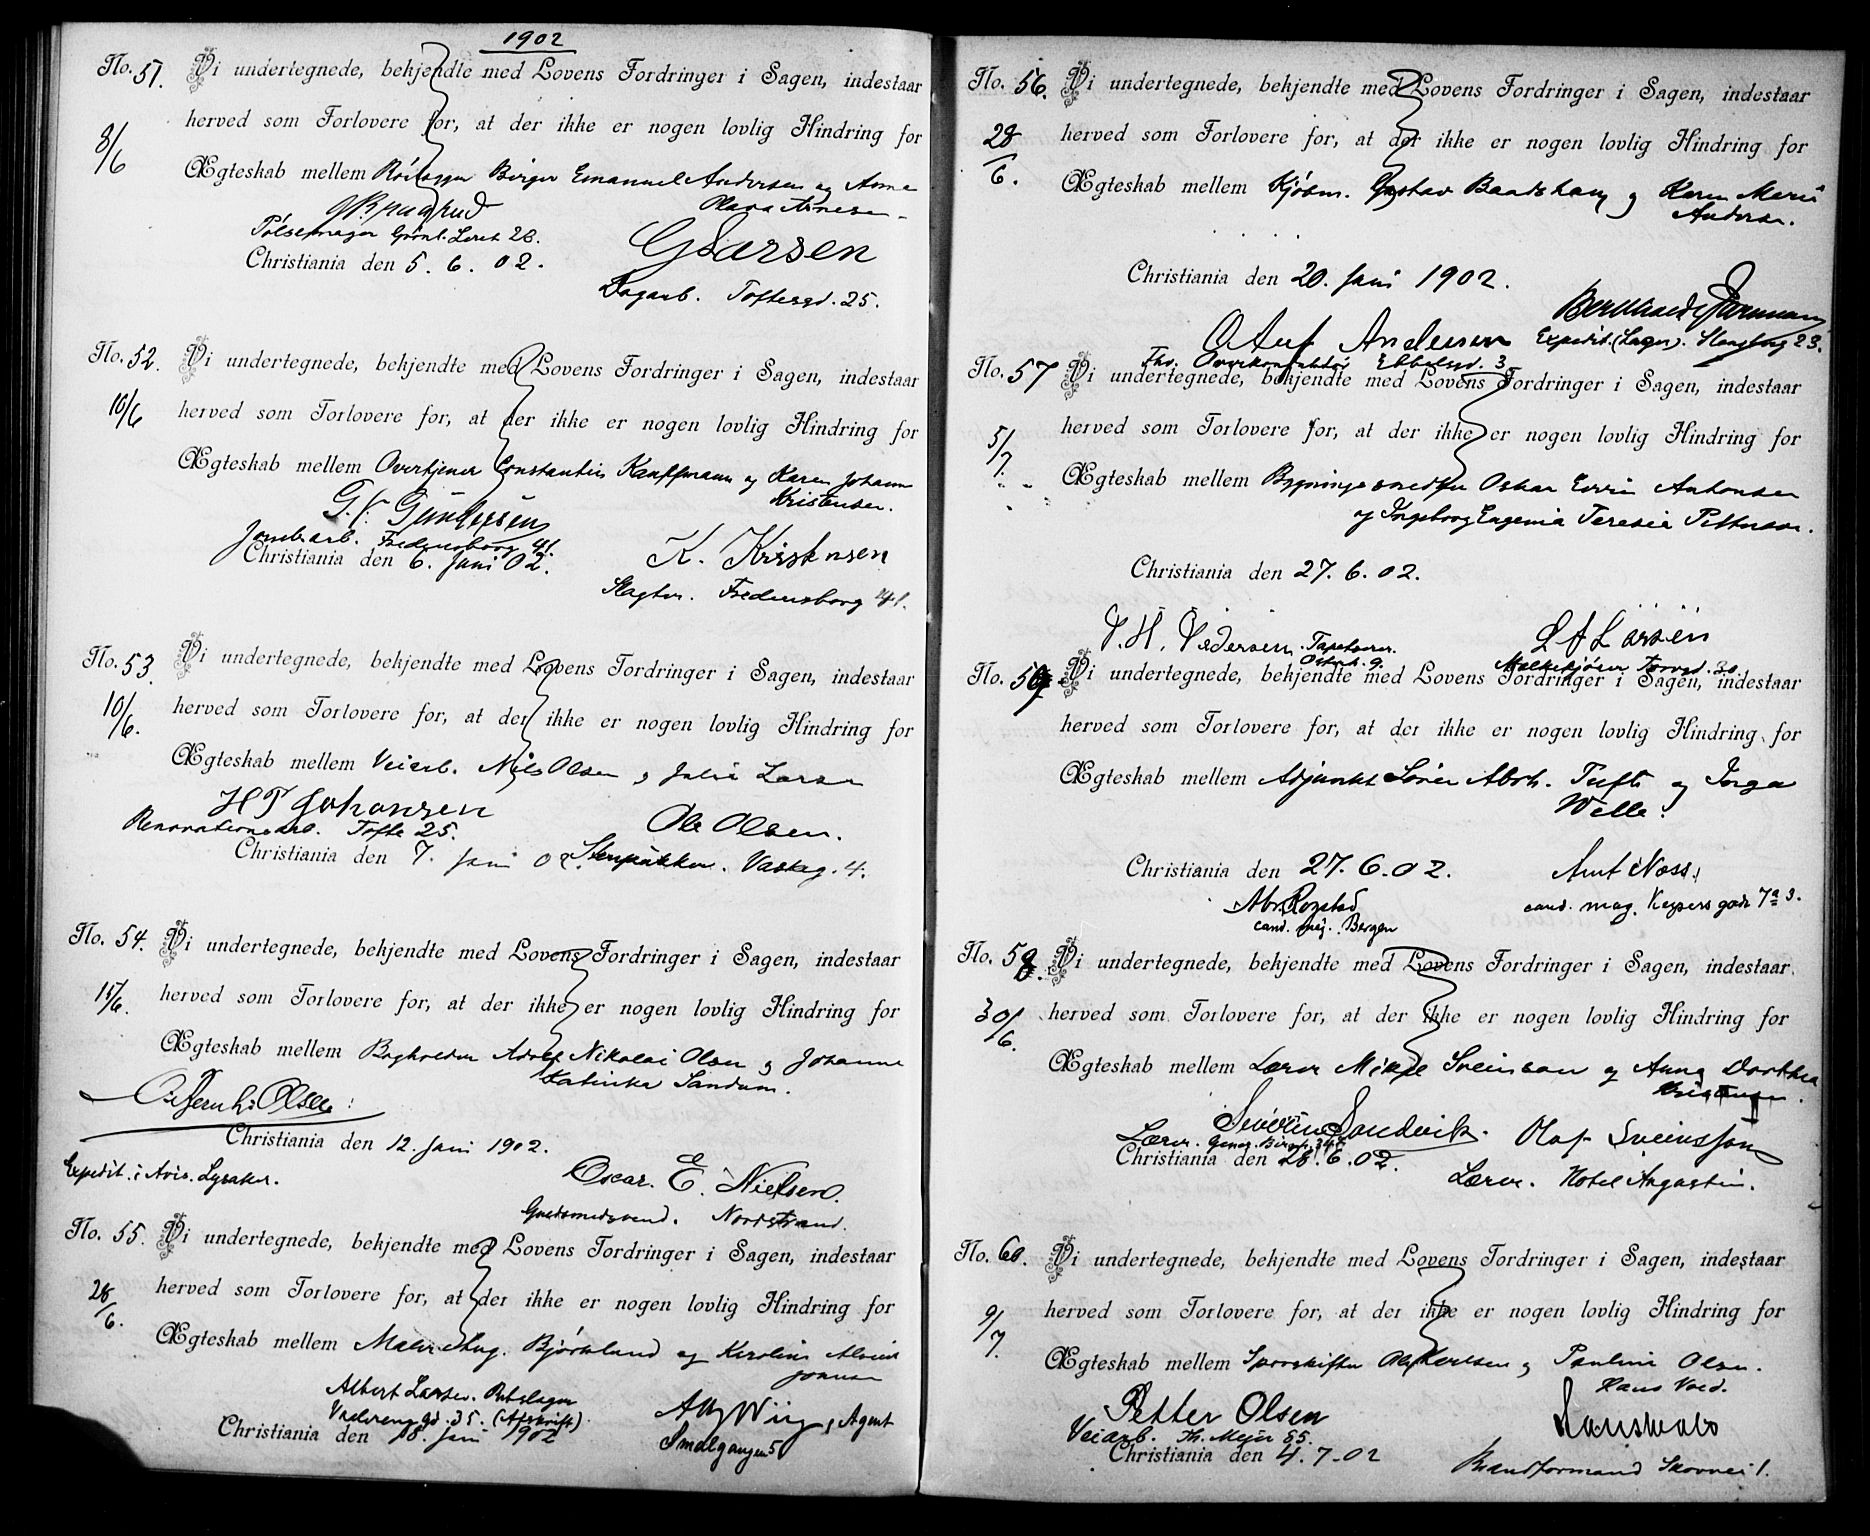 1902
No. 51. Vi undertegnede, bekjendte med Lovens Fordringer i Sagen, indestaar
8/6 herved som Forlovere for, at der ikke er nogen lovlig Hindring for
Ægteskab mellem Birger Emanuel Andersen og Anna
Pølsemager Grønl. Leret 28.
G Larsen
Christiania den 5. 6. 02.
Dagarb. Toftesgd. 25.
No. 52. Vi undertegnede, bekjendte med Lovens Fordringer i Sagen, indestaar
10/6 herved som Forlovere for, at der ikke er nogen lovlig Hindring for
Ægteskab mellem Overtjener Constantin Kauffmann og Karen Johanne
Kristensen.
Gundersen
Jernbarb. Fredensborg 41.
Christiania den 6. Juni 02.
K. Kristensen
Slagter. Fredensborg 41.
No. 53. Vi undertegnede, bekjendte med Lovens Fordringer i Sagen, indestaar
10/6. herved som Forlovere for, at der ikke er nogen lovlig Hindring for
Ægteskab mellem Veiarb. Nils Olsen og Julie Larsen
H T Johansen
Renovationsarb. Tofte 25.
Ole Olsen.
Christiania den 7. Juni 02.
Stenpukker. Vaskeg. 4.
No. 54. Vi undertegnede, bekjendte med Lovens Fordringer i Sagen, indestaar
15/6. herved som Forlovere for, at der ikke er nogen lovlig Hindring for
Ægteskab mellem Bogholder Adolf Nikolai Olsen og Johanne
Katinka Sandum.
Olsen
Christiania den 12. Juni 1902.
Expedit. i Avis. Lysaker.
Oscar. E. Nielsen.
Guldsmedsvend. Nordstrand.
No. 55. Vi undertegnede, bekjendte med Lovens Fordringer i Sagen, indestaar
28/6. herved som Forlovere for, at der ikke er nogen lovlig Hindring for
Ægteskab mellem Maler Aug. Bjørklund og Karoline
Albert Larsen. Rebslager
Vaalereng gd. 35. (Afskrift).
Christiania den 18. Juni 1902
Agent
Smalgangen 5
No. 56. Vi undertegnede, bekjendte med Lovens Fordringer i Sagen, indestaar
28/6. herved som Forlovere for, at der ikke er nogen lovlig Hindring for
Ægteskab mellem Kjøbm. Gustav Baadshaug og Karen Marie
Andersen.
Christiania den 20. Juni 1902.
Andersen
Expedit. (Lager). 23.
Ebbelsgd. 3
No. 57 Vi undertegnede, bekjendte med Lovens Fordringer i Sagen, indestaar
5/7. herved som Forlovere for, at der ikke er nogen lovlig Hindring for
Ægteskab mellem Bygningssnedker Oskar Antonsen
og Ingeborg Eugenia Teresia Pettersen.
Christiania den 27. 6. 02.
V. H. Pedersen. Tapetserer.
L A Larsen
Melkekjører Torvgd. 30
No. Vi undertegnede, bekjendte med Lovens Fordringer i Sagen, indestaar
herved som Forlovere for, at der ikke er nogen lovlig Hindring for
Ægteskab mellem Adjunkt Sören Abrh. Tufte og Inga
Welle.
Christiania den 27. 6. 02.
Arnt Næss.
cand. mag. Keysersgade 7a 3.
Abr. Rogstad
cand. Bergen
No. 58. Vi undertegnede, bekjendte med Lovens Fordringer i Sagen, indestaar
30/6. herved som Forlovere for, at der ikke er nogen lovlig Hindring for
Ægteskab mellem Lærer Mikal Sveinson og Anna Dorthea
Kristensen.
Severin Sandvik.
Olaf Sveinsson
Lærer.
Christiania den 28. 6. 02.
Lærer. Hotel Augustin.
No. 60. Vi undertegnede, bekjendte med Lovens Fordringer i Sagen, indestaar
9/7. herved som Forlovere for, at der ikke er nogen lovlig Hindring for
Ægteskab mellem Sporskifter Olaf Karlsen og Pauline Olsen.
Hans Vold.
Petter Olsen
Veiarb. Th. Meyer 85.
Christiania den 4. 7. 02
Brandformand Skovvei 1.